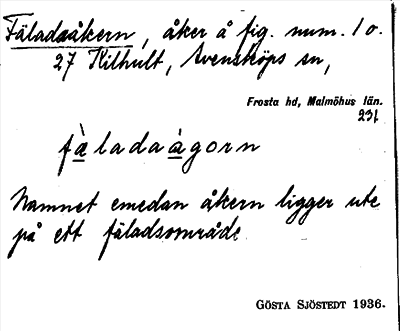 Fäladsåkern, åker å fig. num. 1 o.
27 Kilhult, Svensköps sn,
Frosta hd, Malmöhus län.
231
fàladaàgorn
Namnet emedan åkern ligger ute
på ett fäladsområde
GÖSTA SJÖSTEDT 1936.